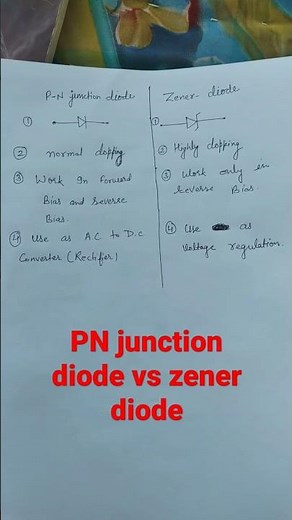 P-N junction diode
①
② normal dopping
③ Work In forward
Bias and Reverse
Bias.
④ Use as A.C to D.C
Converter (Rectifier)
Zener-diode
①
② Highly dopping
③ Work only in
Reverse Bias.
④ Use as
voltage regulation.
PN junction
diode vs zener
diode